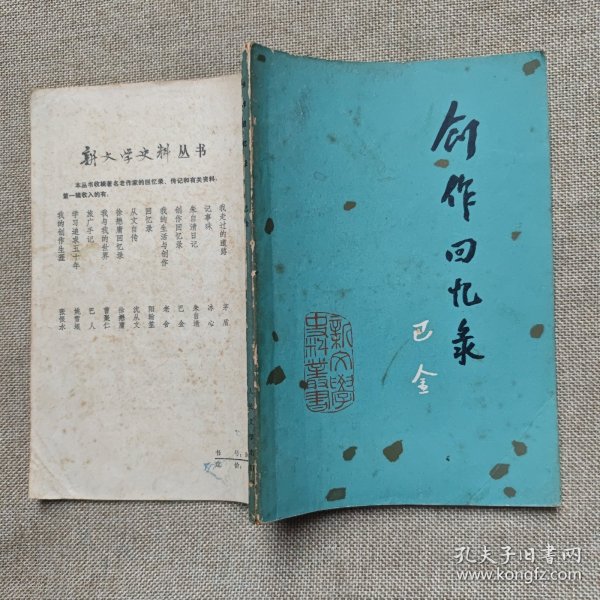 新文学史料丛书
本丛书收辑著名老作家的回忆录、传记和有关资料,
第一辑收入的有:
我走过的道路 茅盾
记事珠 冰心
朱自清日记 朱自清
创作回忆录 巴金
我的生活与创作 老舍
回忆录 阳翰笙
从文自传 沈从文
徐懋庸回忆录 徐懋庸
我与我的世界 曹聚仁
旅广手记 巴人
学习追求五十年 姚雪垠
我的创作生涯 张恨水
书 号:
定 价:
创作回忆录
巴金
新文學
史料叢書
孔夫子旧书网
www.kongfz.com